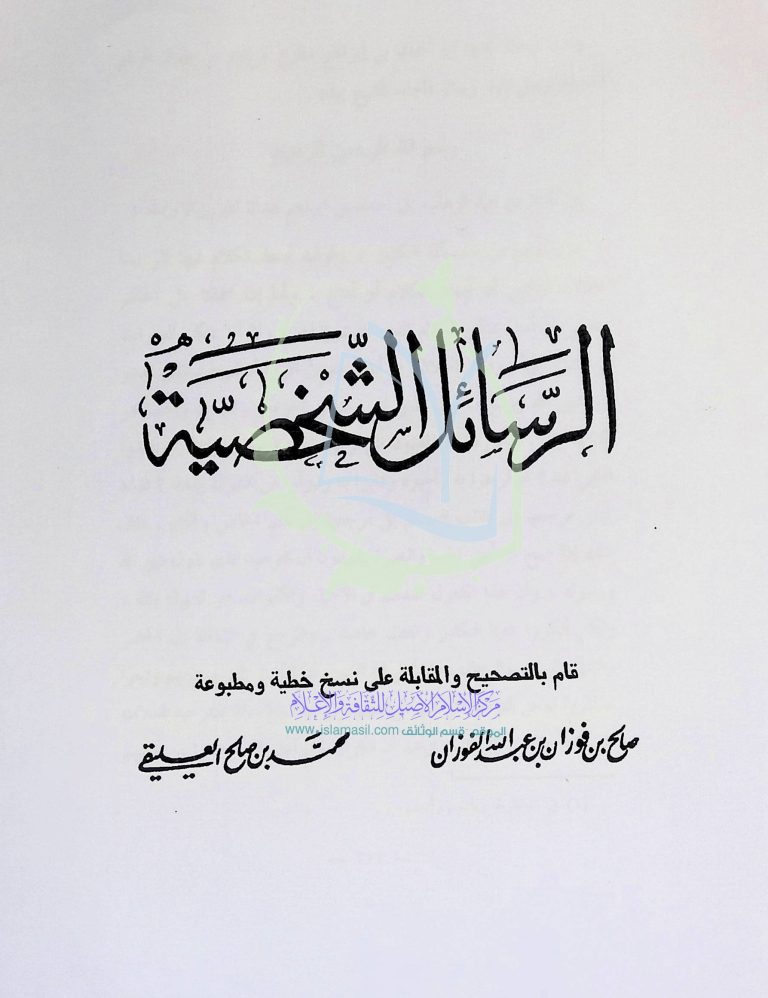 الرَّسَائِل الشَّخصِيَّة
قام بالتصحيح والمقابلة على نسخ خطية ومطبوعة
مركز الإسلام الأصيل للثقافة والإعلام
الموقع: قسم الوثائق www.islamasil.com
صالح بن فوزان بن عبد الله الفوزان محمَّد بن صالح العيلقي